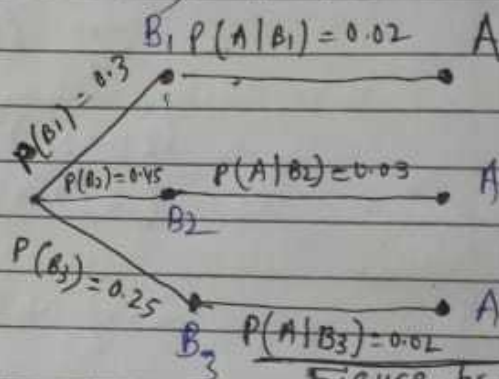 B1 P(A|B1) = 0.02 A
P(B1) = 0.3
P(B2) = 0.45 P(A|B2) = 0.03 A
B2
P(B3) = 0.25
A
B3 P(A|B3) = 0.02